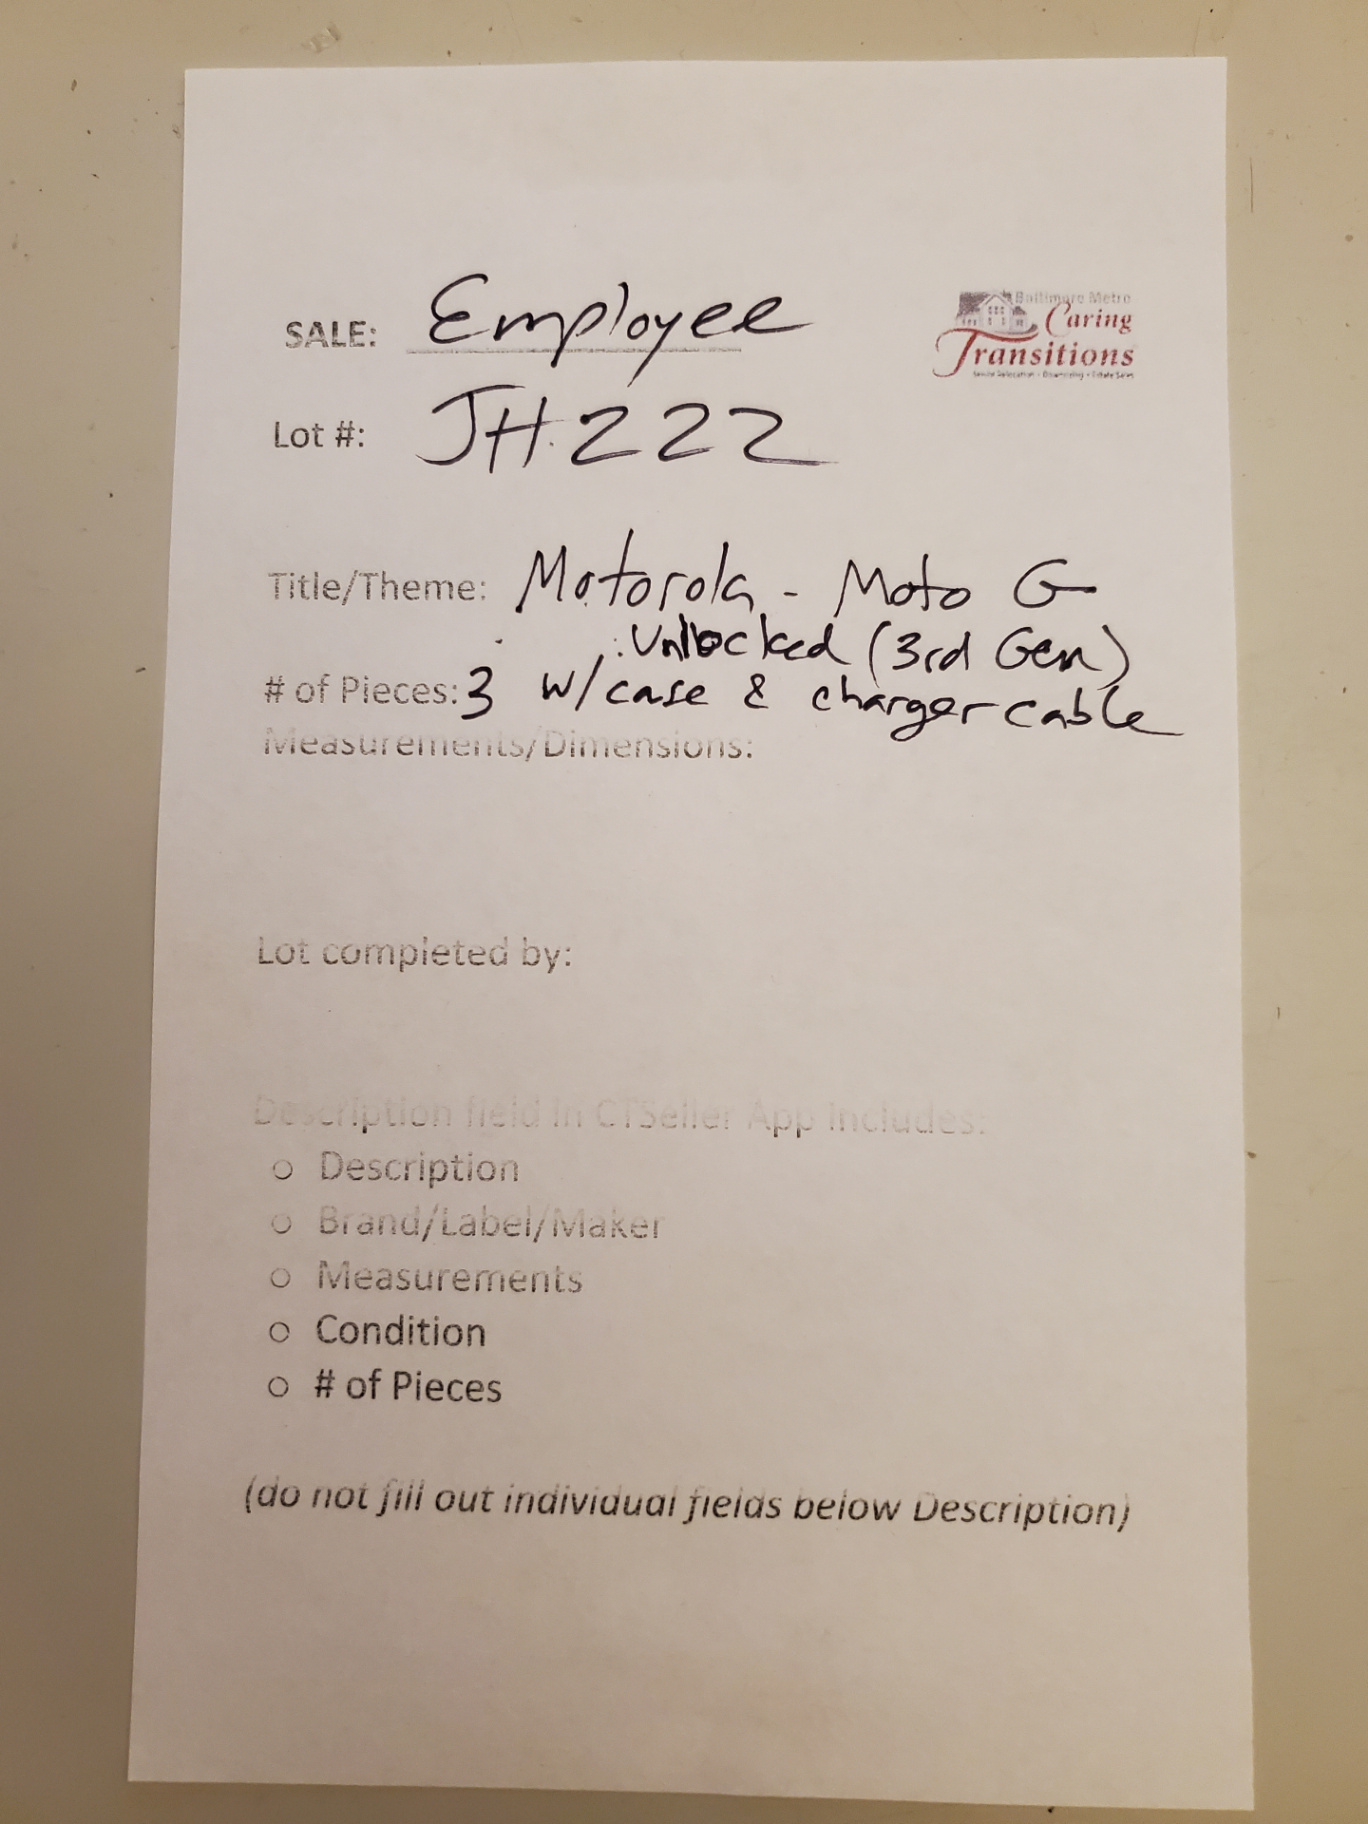 Baltimore Metro
SALE: Employee
Caring
Transitions
Senior Relocation • Downsizing • Estate Sales
Lot #: JH 222
Title/Theme: Motorola - Moto G
Unlocked (3rd Gen)
# of Pieces: 3 w/case & charger cable
Measurements/Dimensions:
Lot completed by:
Description field in CTSeller App includes:
○ Description
○ Brand/Label/Maker
○ Measurements
○ Condition
○ # of Pieces
(do not fill out individual fields below Description)